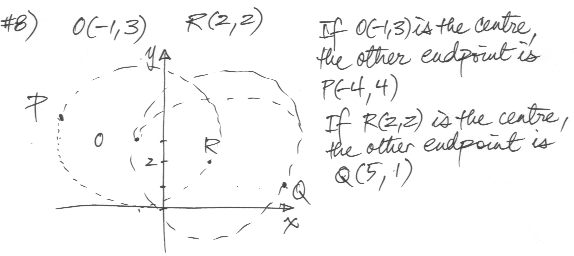 #8) O(-1,3) R(2,2)
If O(-1,3) is the centre,
the other endpoint is
P(-4,4)
If R(2,2) is the centre,
the other endpoint is
Q(5,1)
y
P
O
R
2
Q
x